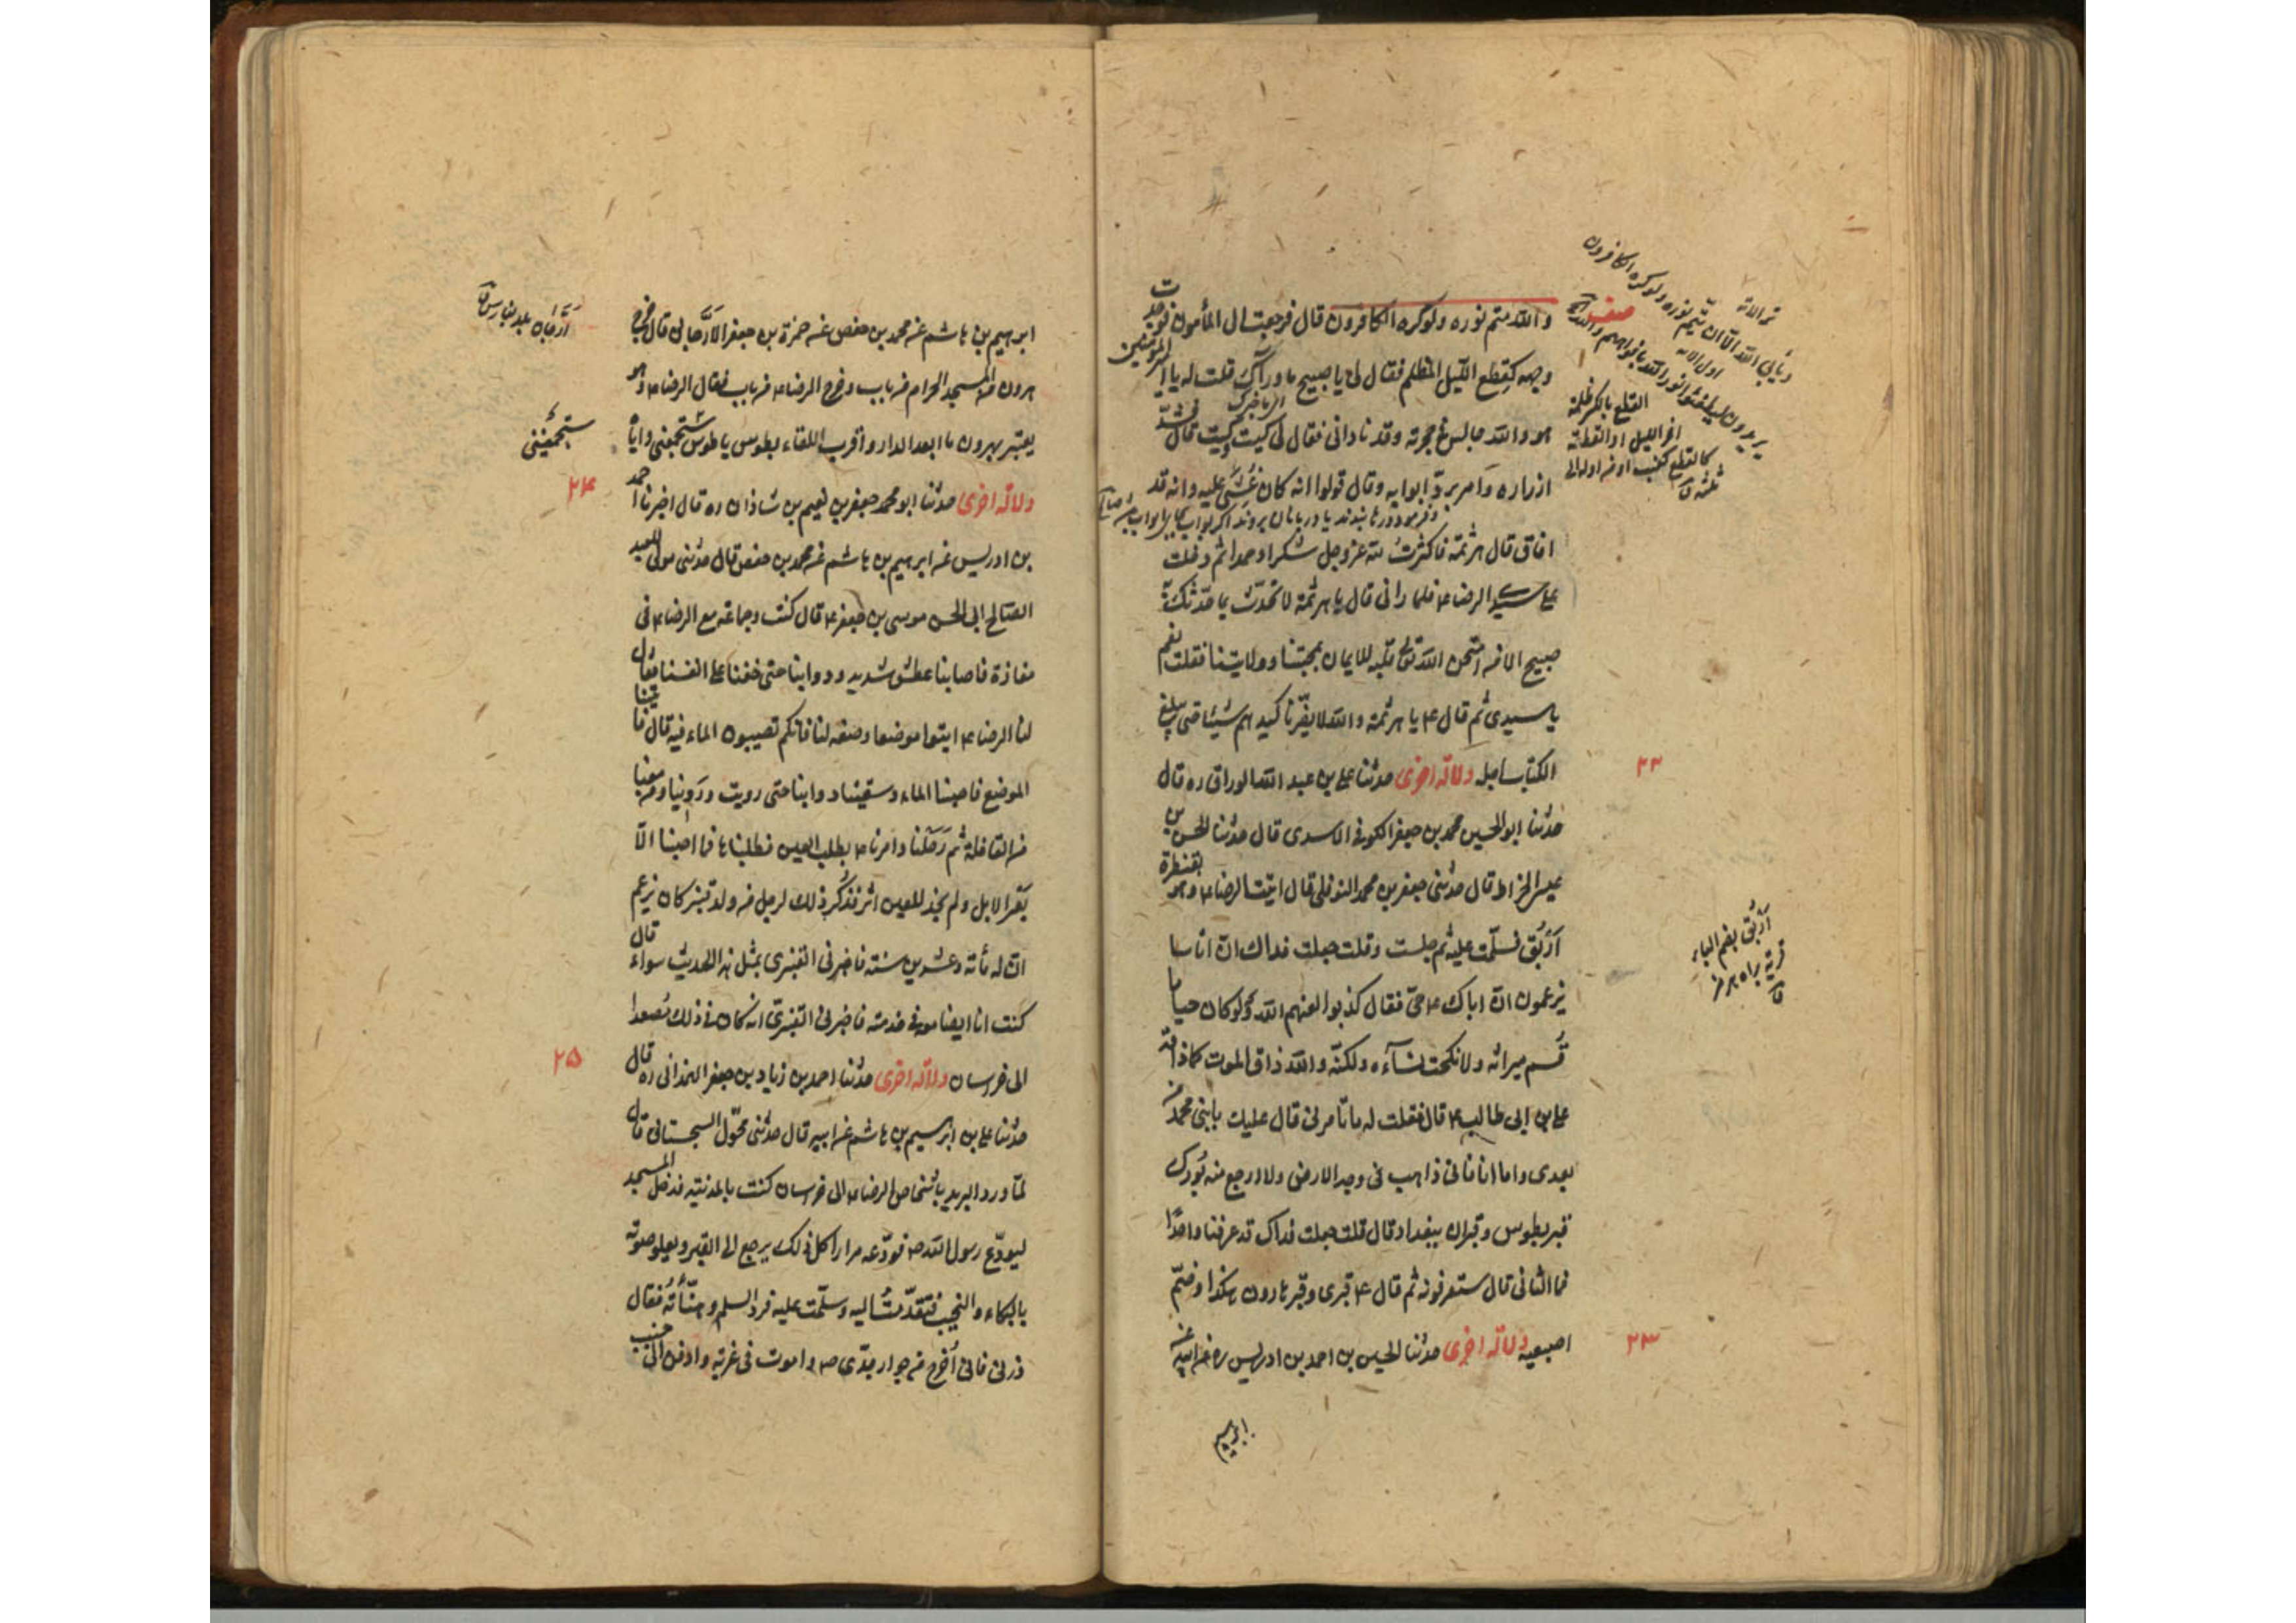 والله متم نوره ولو كره الكافرون قال فرجعت الى المأمون فوجدت
وجهه كقطع الليل المظلم فقال لى يا صبيح ما وراك قلت له يا امير المؤمنين
هو والله جالس فى حجرته وقد نادانى فقال لى كيت وكيت قال فشد
ازراره وامر برد ابوابه وقال قولوا انه كان غشى عليه وانه قد
افاق قال هرثمة فاكثرت لله عز وجل شكرا وحمدا ثم دخلت
على سيدى الرضا ع فلما رانى قال يا هرثمة لا تحدث بما حدثك به
صبيح الا من امتحن الله قلبه للايمان بمحبتنا وولايتنا فقلت نعم
يا سيدى ثم قال ع يا هرثمة والله لا يضرنا كيدهم شيئا حتى يبلغ
الكتاب اجله دلالة اخرى حدثنا على بن عبد الله الوراق ره قال
٢٢
حدثنا ابو الحسين محمد بن جعفر الكوفى الاسدى قال حدثنا الحسن بن
عيسى الخراط قال حدثنى جعفر بن محمد النوفلى قال اتيت الرضا ع وهو بقنطرة
اربق فسلمت عليه ثم جلست وقلت جعلت فداك ان اناسا
يزعمون ان اباك ع حى فقال كذبوا لعنهم الله ولو كان حيا ما
قسم ميراثه ولا نكحت نساؤه ولكنه والله ذاق الموت كما ذاقه
على بن ابى طالب ع قال فقلت له ما تامرنى قال عليك بابنى محمد من
بعدى واما انا فانى ذاهب فى وجه الارض ولا ارجع منه بورك
قبر بطوس وقبران ببغداد قال قلت جعلت فداك قد عرفنا واحدا
فما الثانى قال ستعرفونه ثم قال ع قبرى وقبر هارون هكذا وضم
اصبعيه دلالة اخرى حدثنا الحسين بن احمد بن ادريس ره عن ابيه عن
٢٣
ابرهيم
تمر الاية
ويأبى الله الا ان يتم نوره ولو كره الكافرون
اول الاية
يريدون ليطفئوا نور الله بافواههم والله
القطع بالكسر ظلمة
اخر الليل او القطعة
كالقطع كعنب او من اوله الى
ثلثه ق
اربق بضم الباء
قرية برامهرمز
ق
ابرهيم بن هاشم عن محمد بن حفص عن حمزة بن جعفر الارجانى قال خرج
هرون من المسجد الحرام من باب وخرج الرضا ع من باب فقال الرضا ع وهو
يعتبر بهرون ما ابعد الدار واقرب اللقاء بطوس يا طوس ستجمعنى واياه
دلالة اخرى حدثنا ابو محمد جعفر بن نعيم بن شاذان ره قال اخبرنا احمد
٢٤
بن ادريس عن ابرهيم بن هاشم عن محمد بن حفص قال حدثنى مولى العبد
الصالح ابى الحسن موسى بن جعفر ع قال كنت وجماعة مع الرضا ع فى
مفازة فاصابنا عطش شديد ودوابنا حتى خفنا على انفسنا فقال
لنا الرضا ع ايتوا موضعا وصفه لنا فانكم تصيبون الماء فيه قال فاتينا
الموضع فاصبنا الماء وسقينا دوابنا حتى رويت وروينا ومن معنا
من القافلة ثم رحلنا وامرنا ع بطلب العين فطلبناها فما اصبنا الا
بعر الابل ولم نجد للعين اثر فذكر ذلك لرجل من ولد قنبر كان يزعم
ان له مأة وعشرين سنة فاخبرنى القنبرى بمثل هذا الحديث سواء قال
كنت انا ايضا معه فى خدمته فاخبرنى القنبرى انه كان فى ذلك مصعدا
الى خراسان دلالة اخرى حدثنا احمد بن زياد بن جعفر الهمدانى ره قال
٢٥
حدثنا على بن ابرهيم بن هاشم عن ابيه قال حدثنى محول السجستانى قال
لما ورد البريد باشخاص الرضا ع الى خراسان كنت بالمدنية فدخل المسجد
ليودع رسول الله ص فودعه مرارا كل ذلك يرجع الى القبر ويعلو صوته
بالبكاء والنحيب فتقدمت اليه وسلمت عليه فرد السلم وهنأته فقال
ذرنى فانى اخرج من جوار جدى ص واموت فى غربة وادفن الى جنب
ارجان بلد بفارس ق
ستجمعيننى